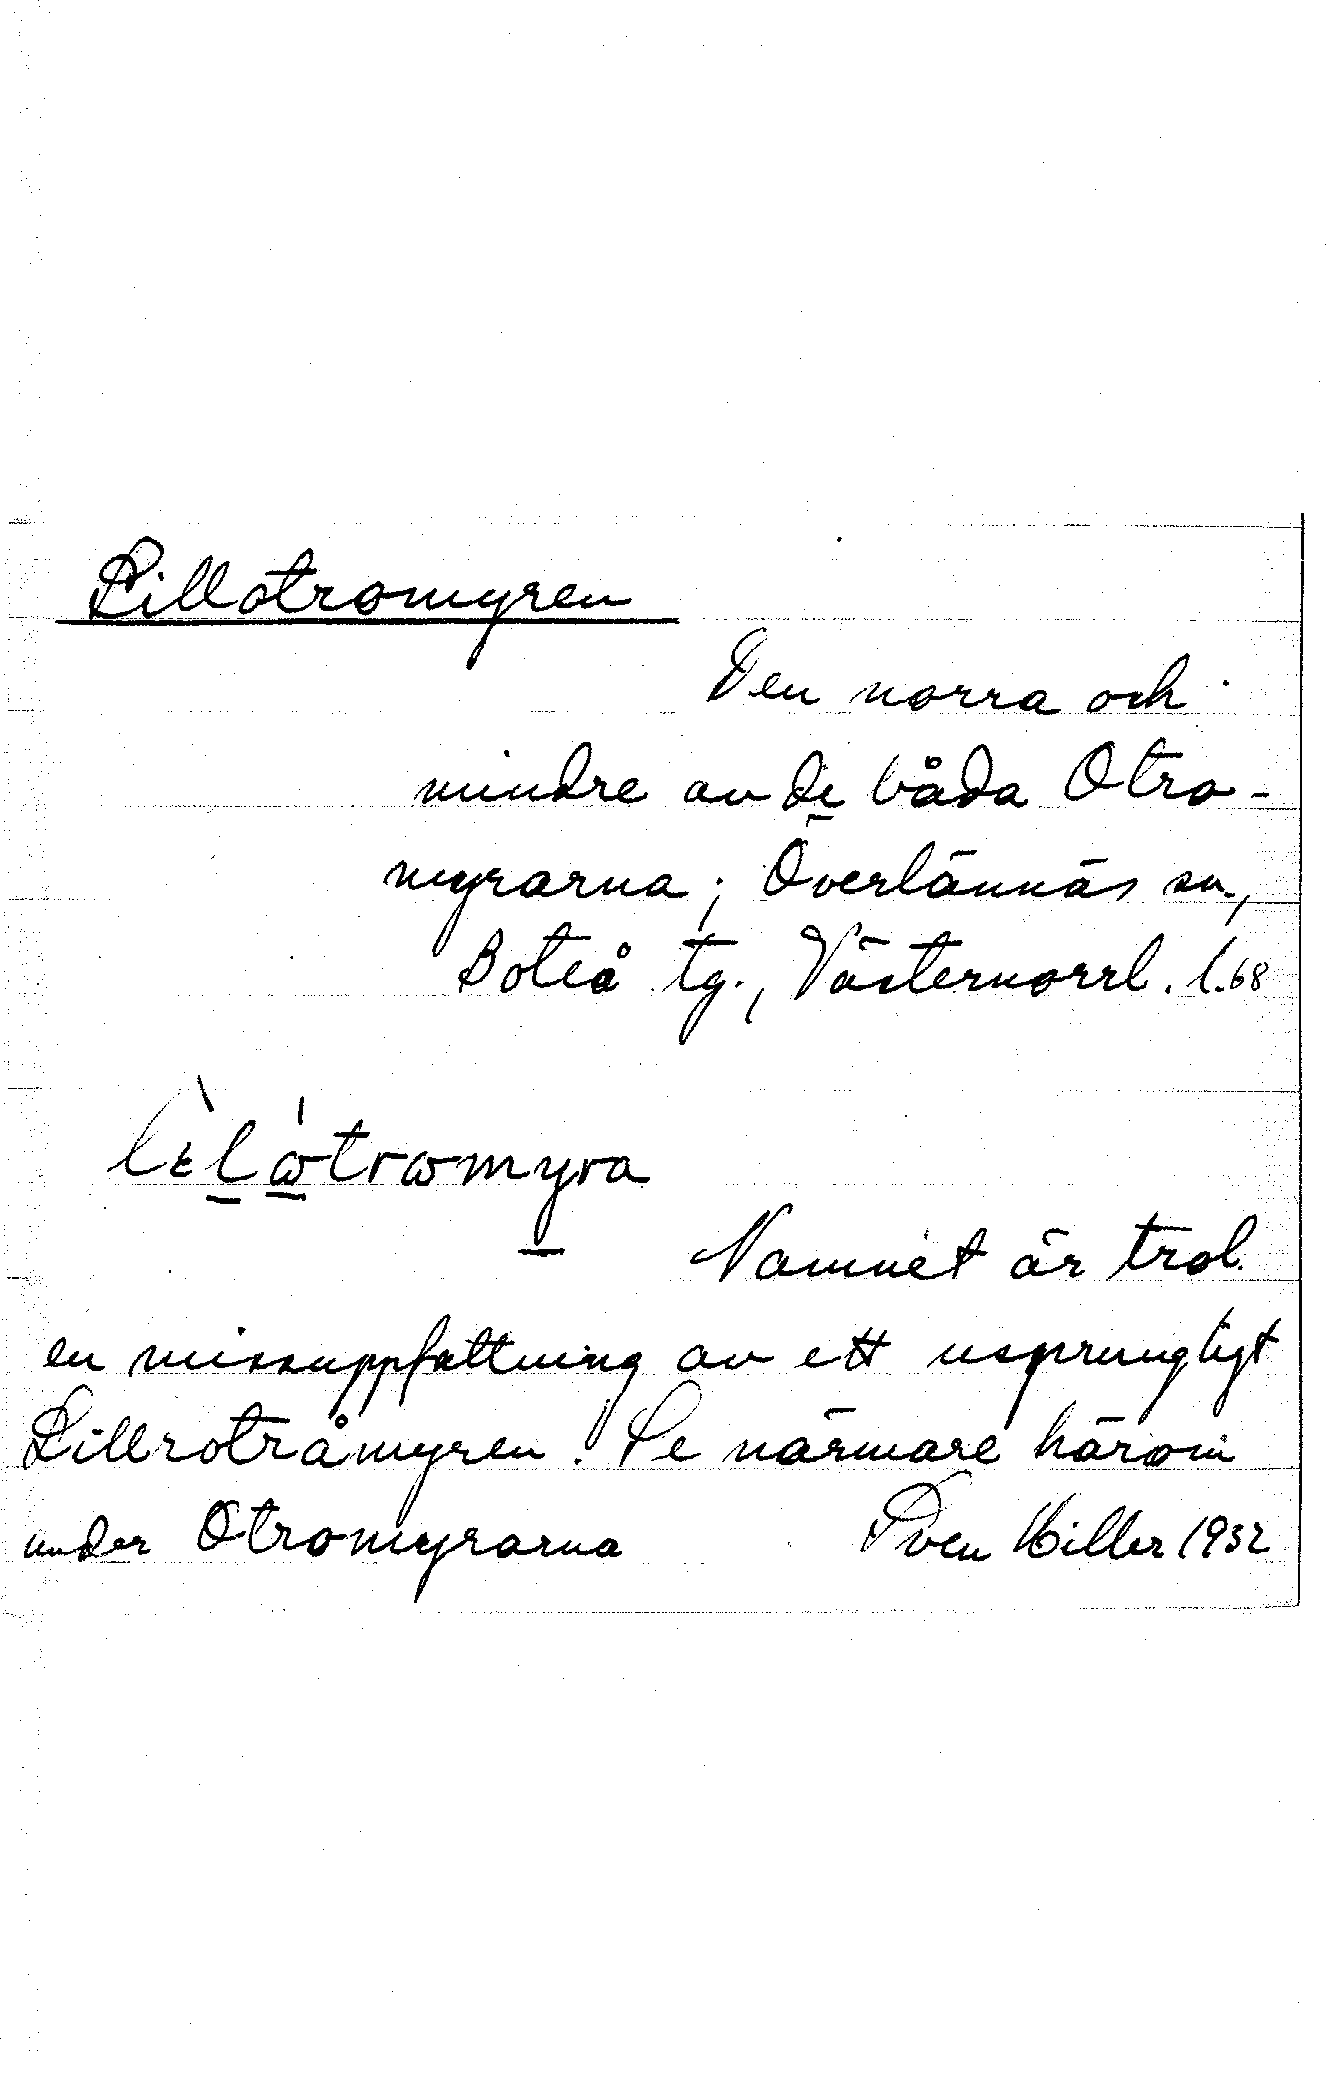 Lillotromyren
Den norra och
mindre av de båda Otro-
myrarna; Överlännäs sn.,
Boteå tg., Västernorrl. l. 68
lìlótromyra
Namnet är trol.
en missuppfattning av ett ursprungligt
Lillrotråmyren. Se närmare härom
under Otromyrarna Sven Hiller 1932